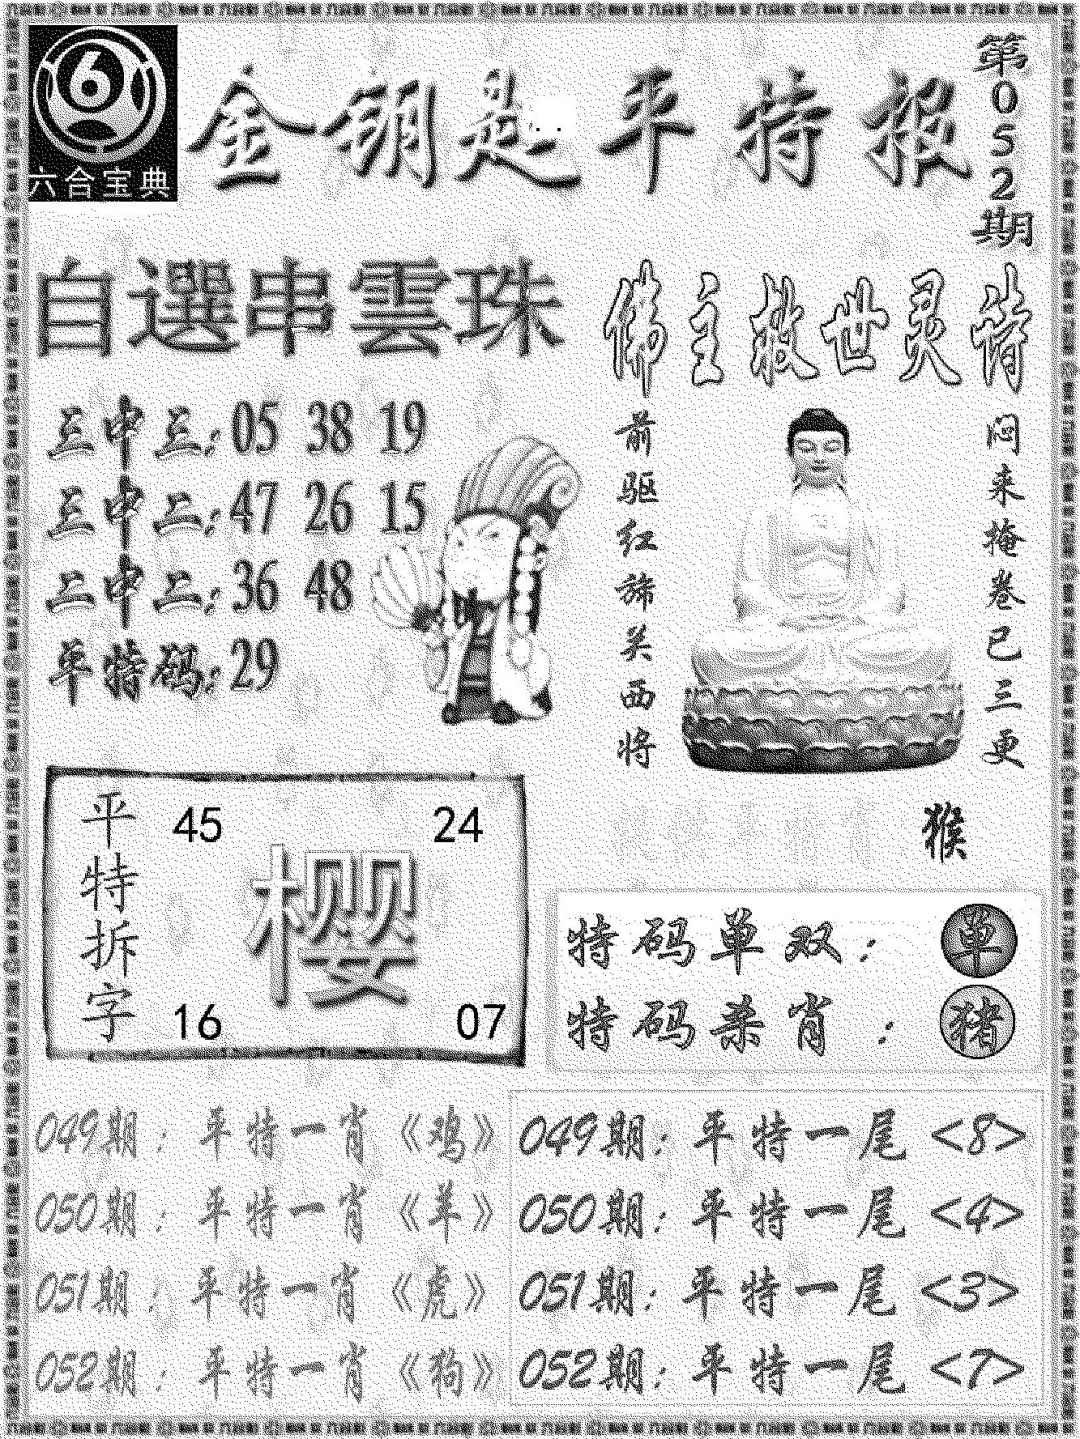 六合宝典
金钥匙 平特报
第052期
自選串雲珠
三中三:05 38 19
三中二:47 26 15
二中二:36 48
平特码:29
佛主救世灵诗
闷来掩卷已三更
前驱红旆关西将
猴
平特拆字
45 24
樱
16 07
特码单双: 单
特码杀肖: 猪
049期:平特一肖《鸡》
050期:平特一肖《羊》
051期:平特一肖《虎》
052期:平特一肖《狗》
049期:平特一尾<8>
050期:平特一尾<4>
051期:平特一尾<3>
052期:平特一尾<7>